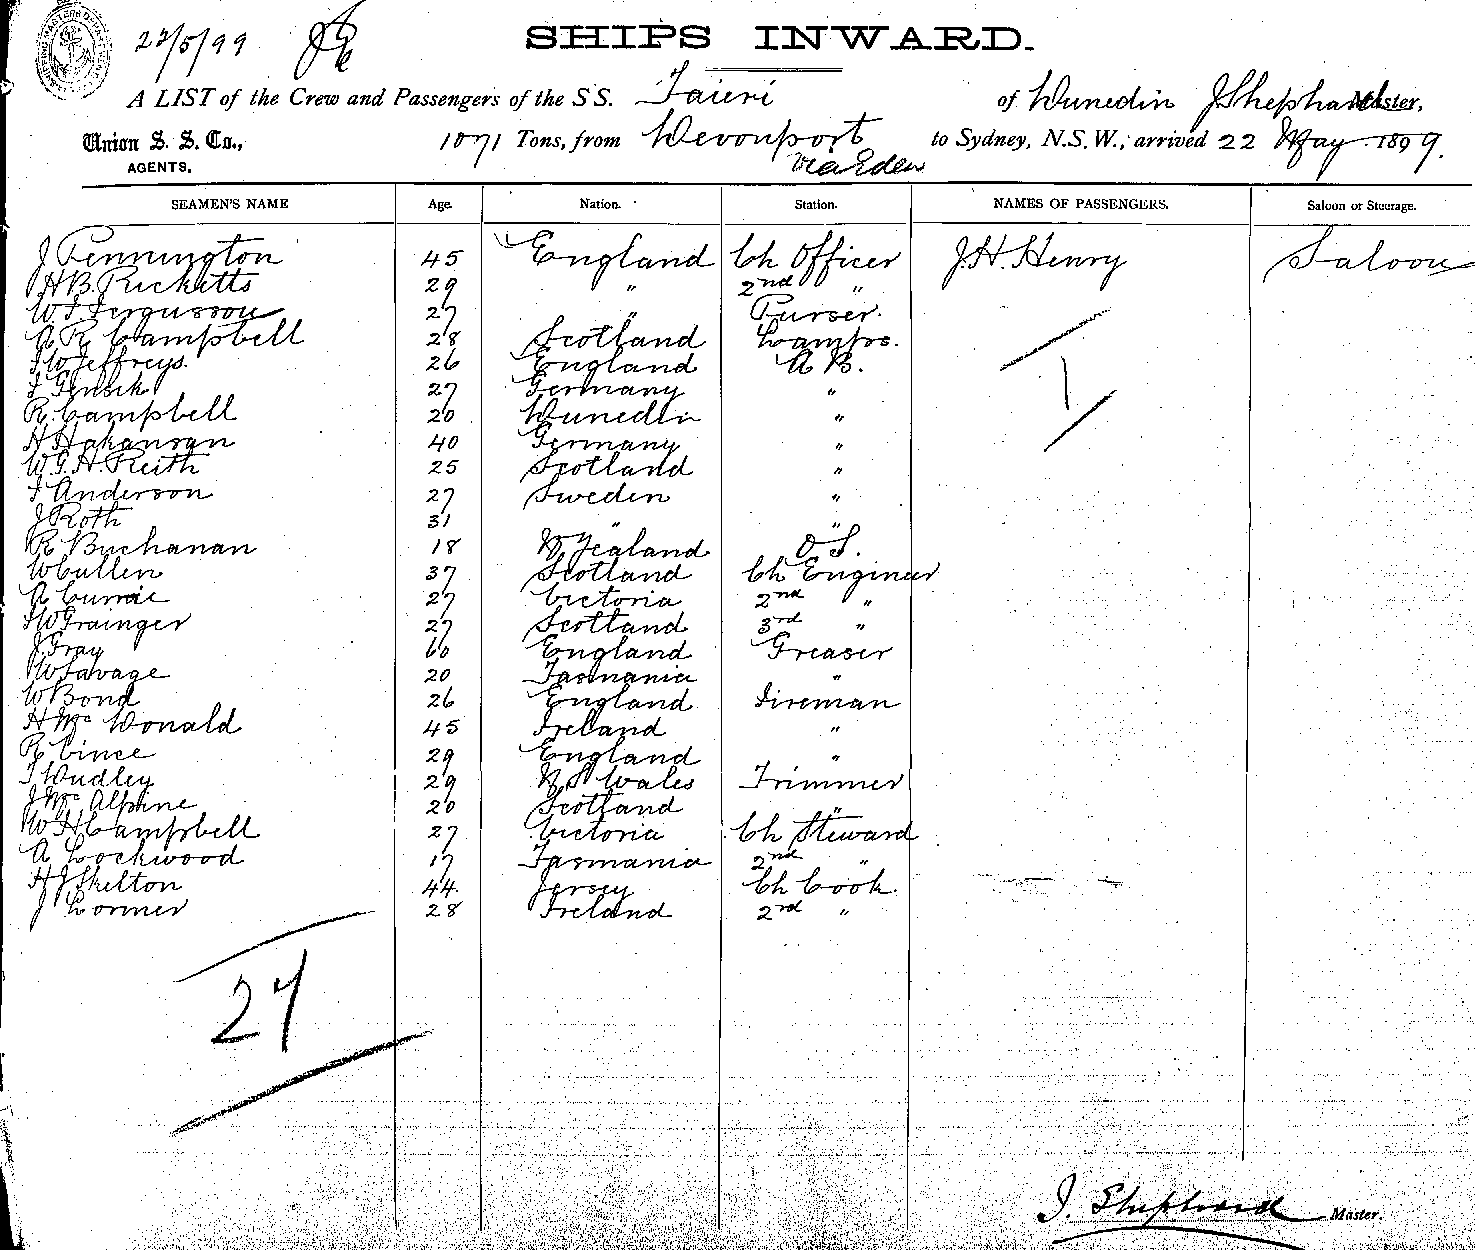 22/5/99
SHIPS INWARD.
A LIST of the Crew and Passengers of the S S. Taieri of Dunedin J Shephard Master,
Union S. S. Co., 1071 Tons, from Devonport to Sydney, N.S.W., arrived 22 May 1899.
AGENTS. via Eden
SEAMEN'S NAME Age. Nation. Station. NAMES OF PASSENGERS. Saloon or Steerage.
J Pennington 45 England Ch Officer J. H. Henry Saloon
H B. Ricketts 29 " 2nd "
W. F. Fergusson 27 " Purser.
A R Campbell 28 Scotland Lamps.
F W Jeffreys. 26 England A B.
27 Germany "
R. Campbell 20 Dunedin "
H Hakansan 40 Germany "
W. G. H. Reith 25 Scotland "
F Anderson 27 Sweden "
J Roth 31 " "
R Buchanan 18 N Zealand O S.
W Cullen 37 Scotland Ch Engineer
A Currie 27 Victoria 2nd "
W Grainger 27 Scotland 3rd "
J Gray 60 England Greaser
W Savage 20 Tasmania "
W Bond 26 England Fireman
H Mc Donald 45 Ireland "
R Vince 29 England "
T Dudley 29 N S Wales Trimmer
J Mc Alpine 20 Scotland "
W H Campbell 27 Victoria Ch Steward
A Lockwood 17 Tasmania 2nd "
H J Skelton 44. Jersey Ch Cook.
J Lormer 28 Ireland 2nd "
1
27
J. Shephard Master.